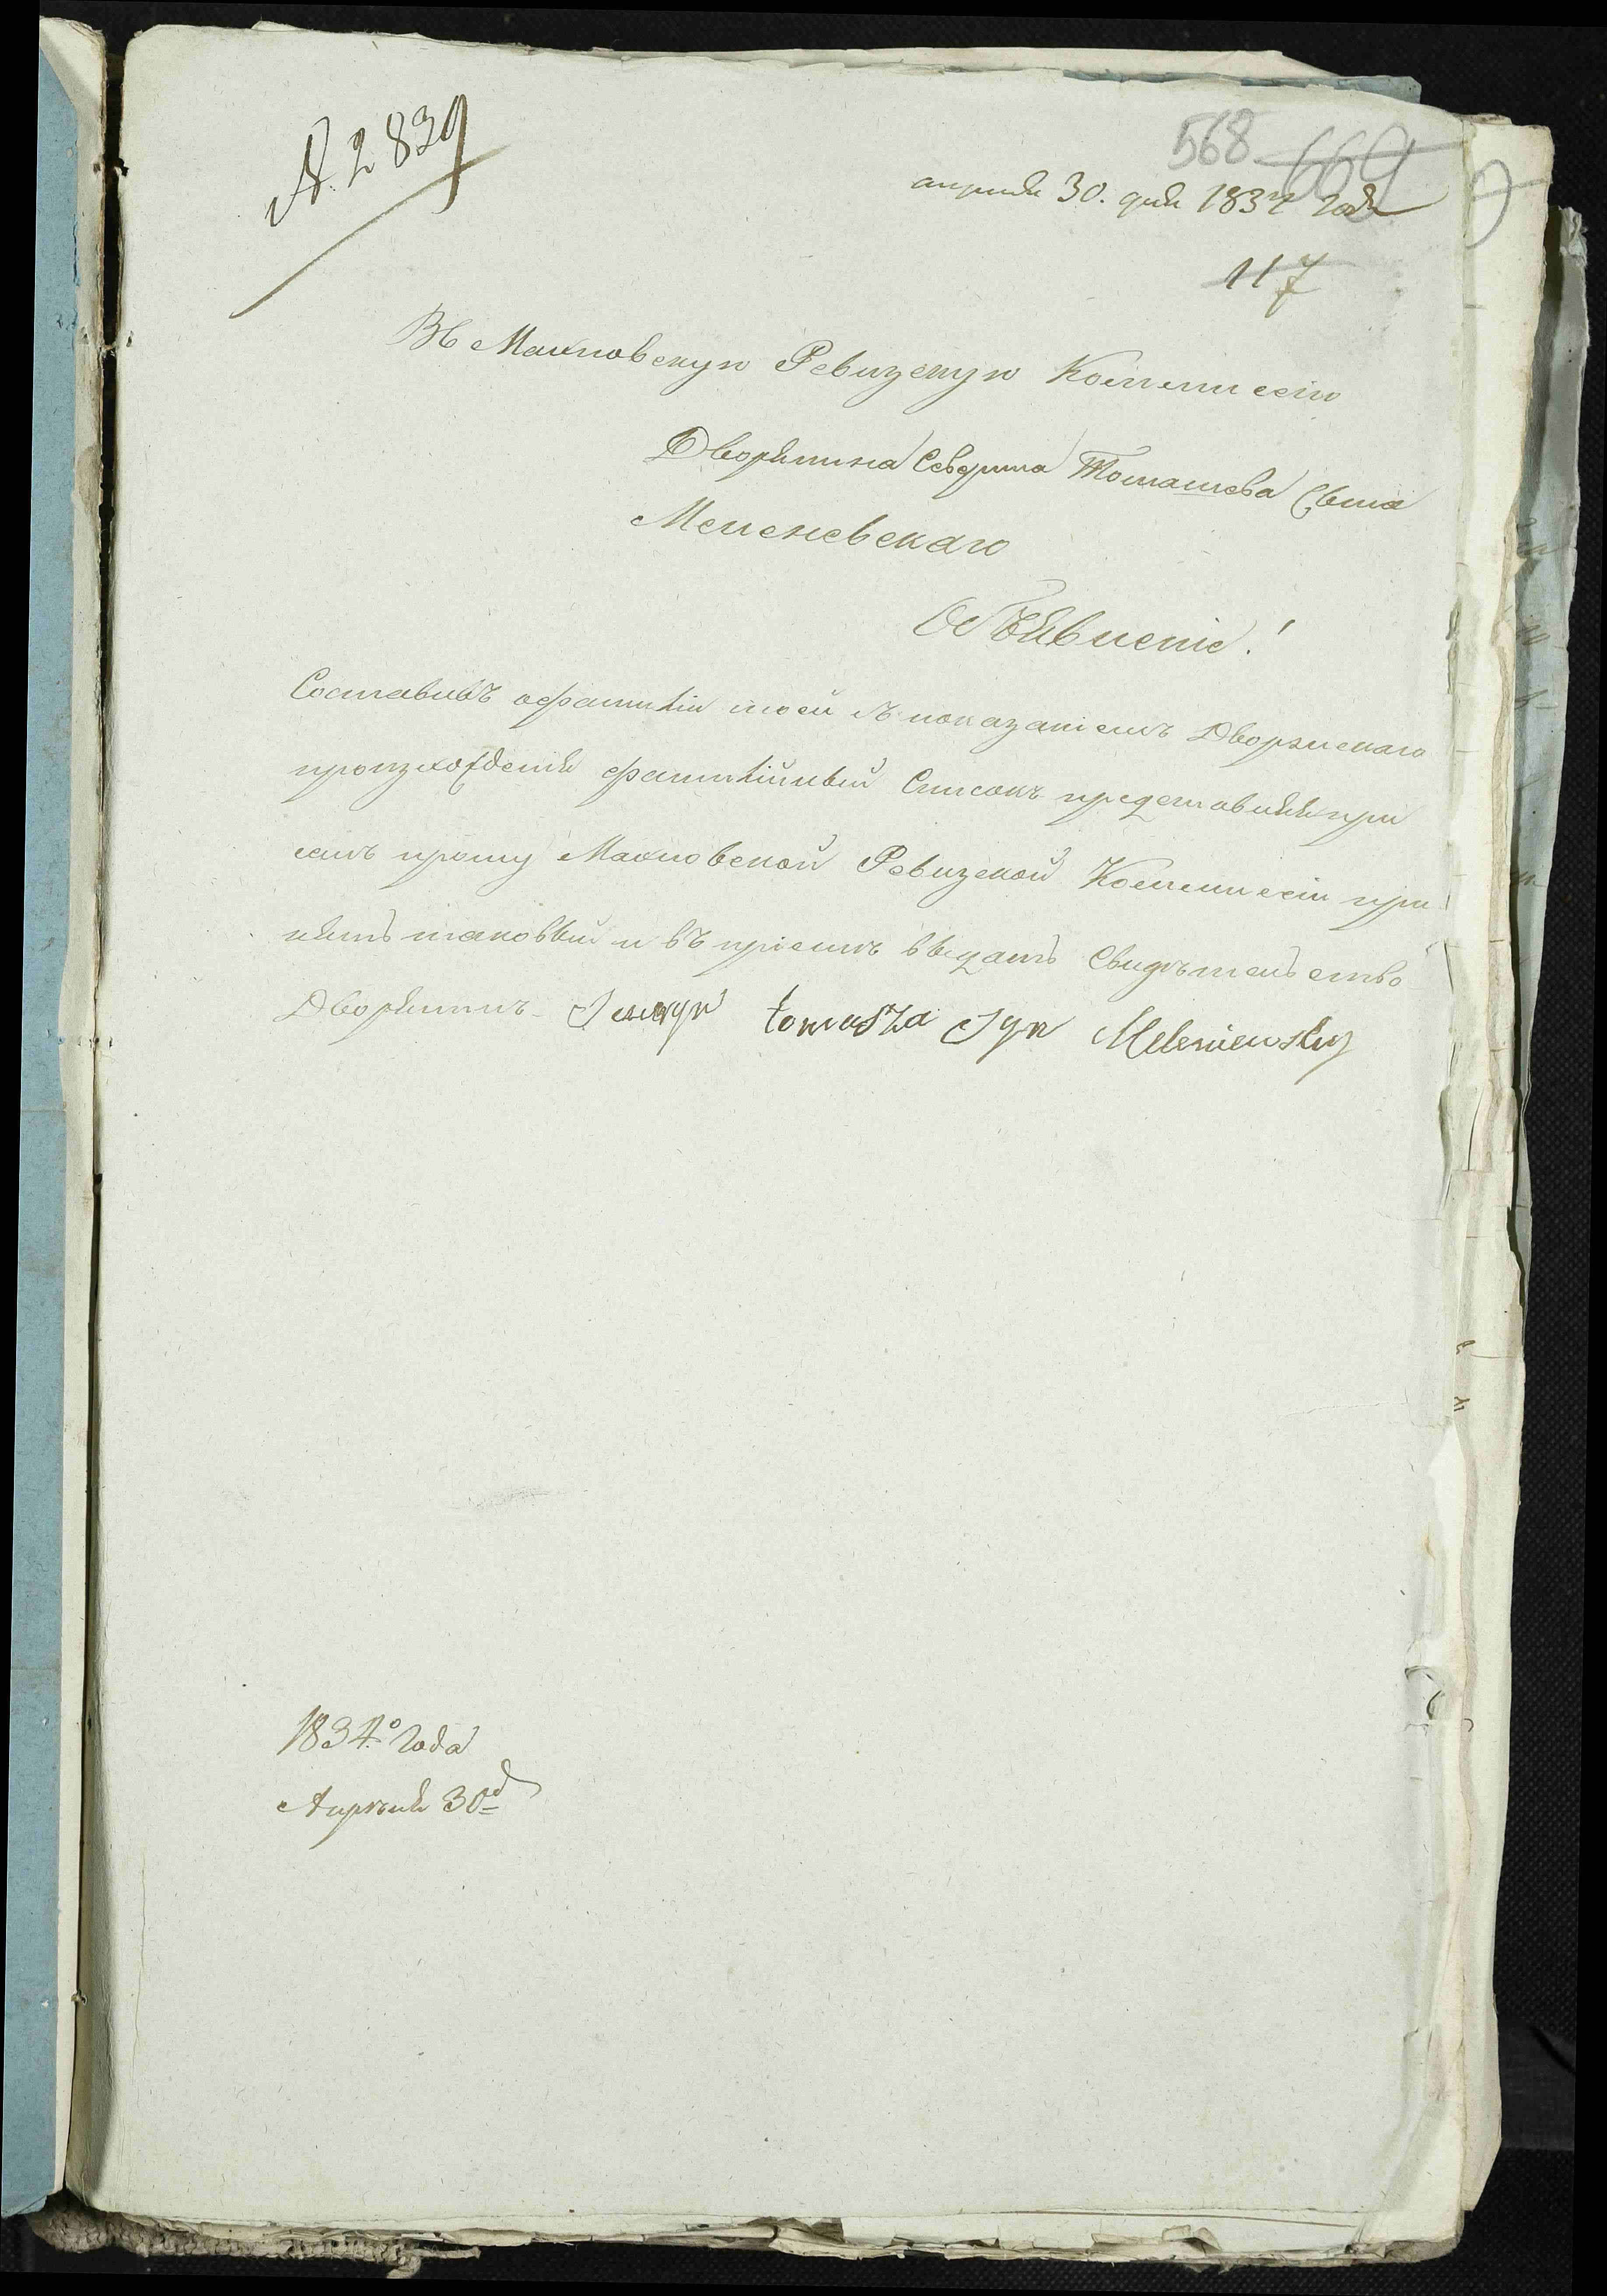 № 2839
568 669
апреля 30. дня 1834 года
117
Въ Махновскую Ревизскую Коммиссію
Дворянина Севєрина Томашева Сына
Меленевскаго
Объявленіе!
Составивъ о фамиліи моей съ показаніемъ Дворянскаго
произхожденія фамилійный Списокъ представляя при
семъ прошу Махновской Ревизской Коммиссіи при
нять таковый и въ пріемѣ выдать Свидѣтельство
Дворянинъ Seweryn tomasza Syn Meleniewsky
1834го года
Апрѣля 30д